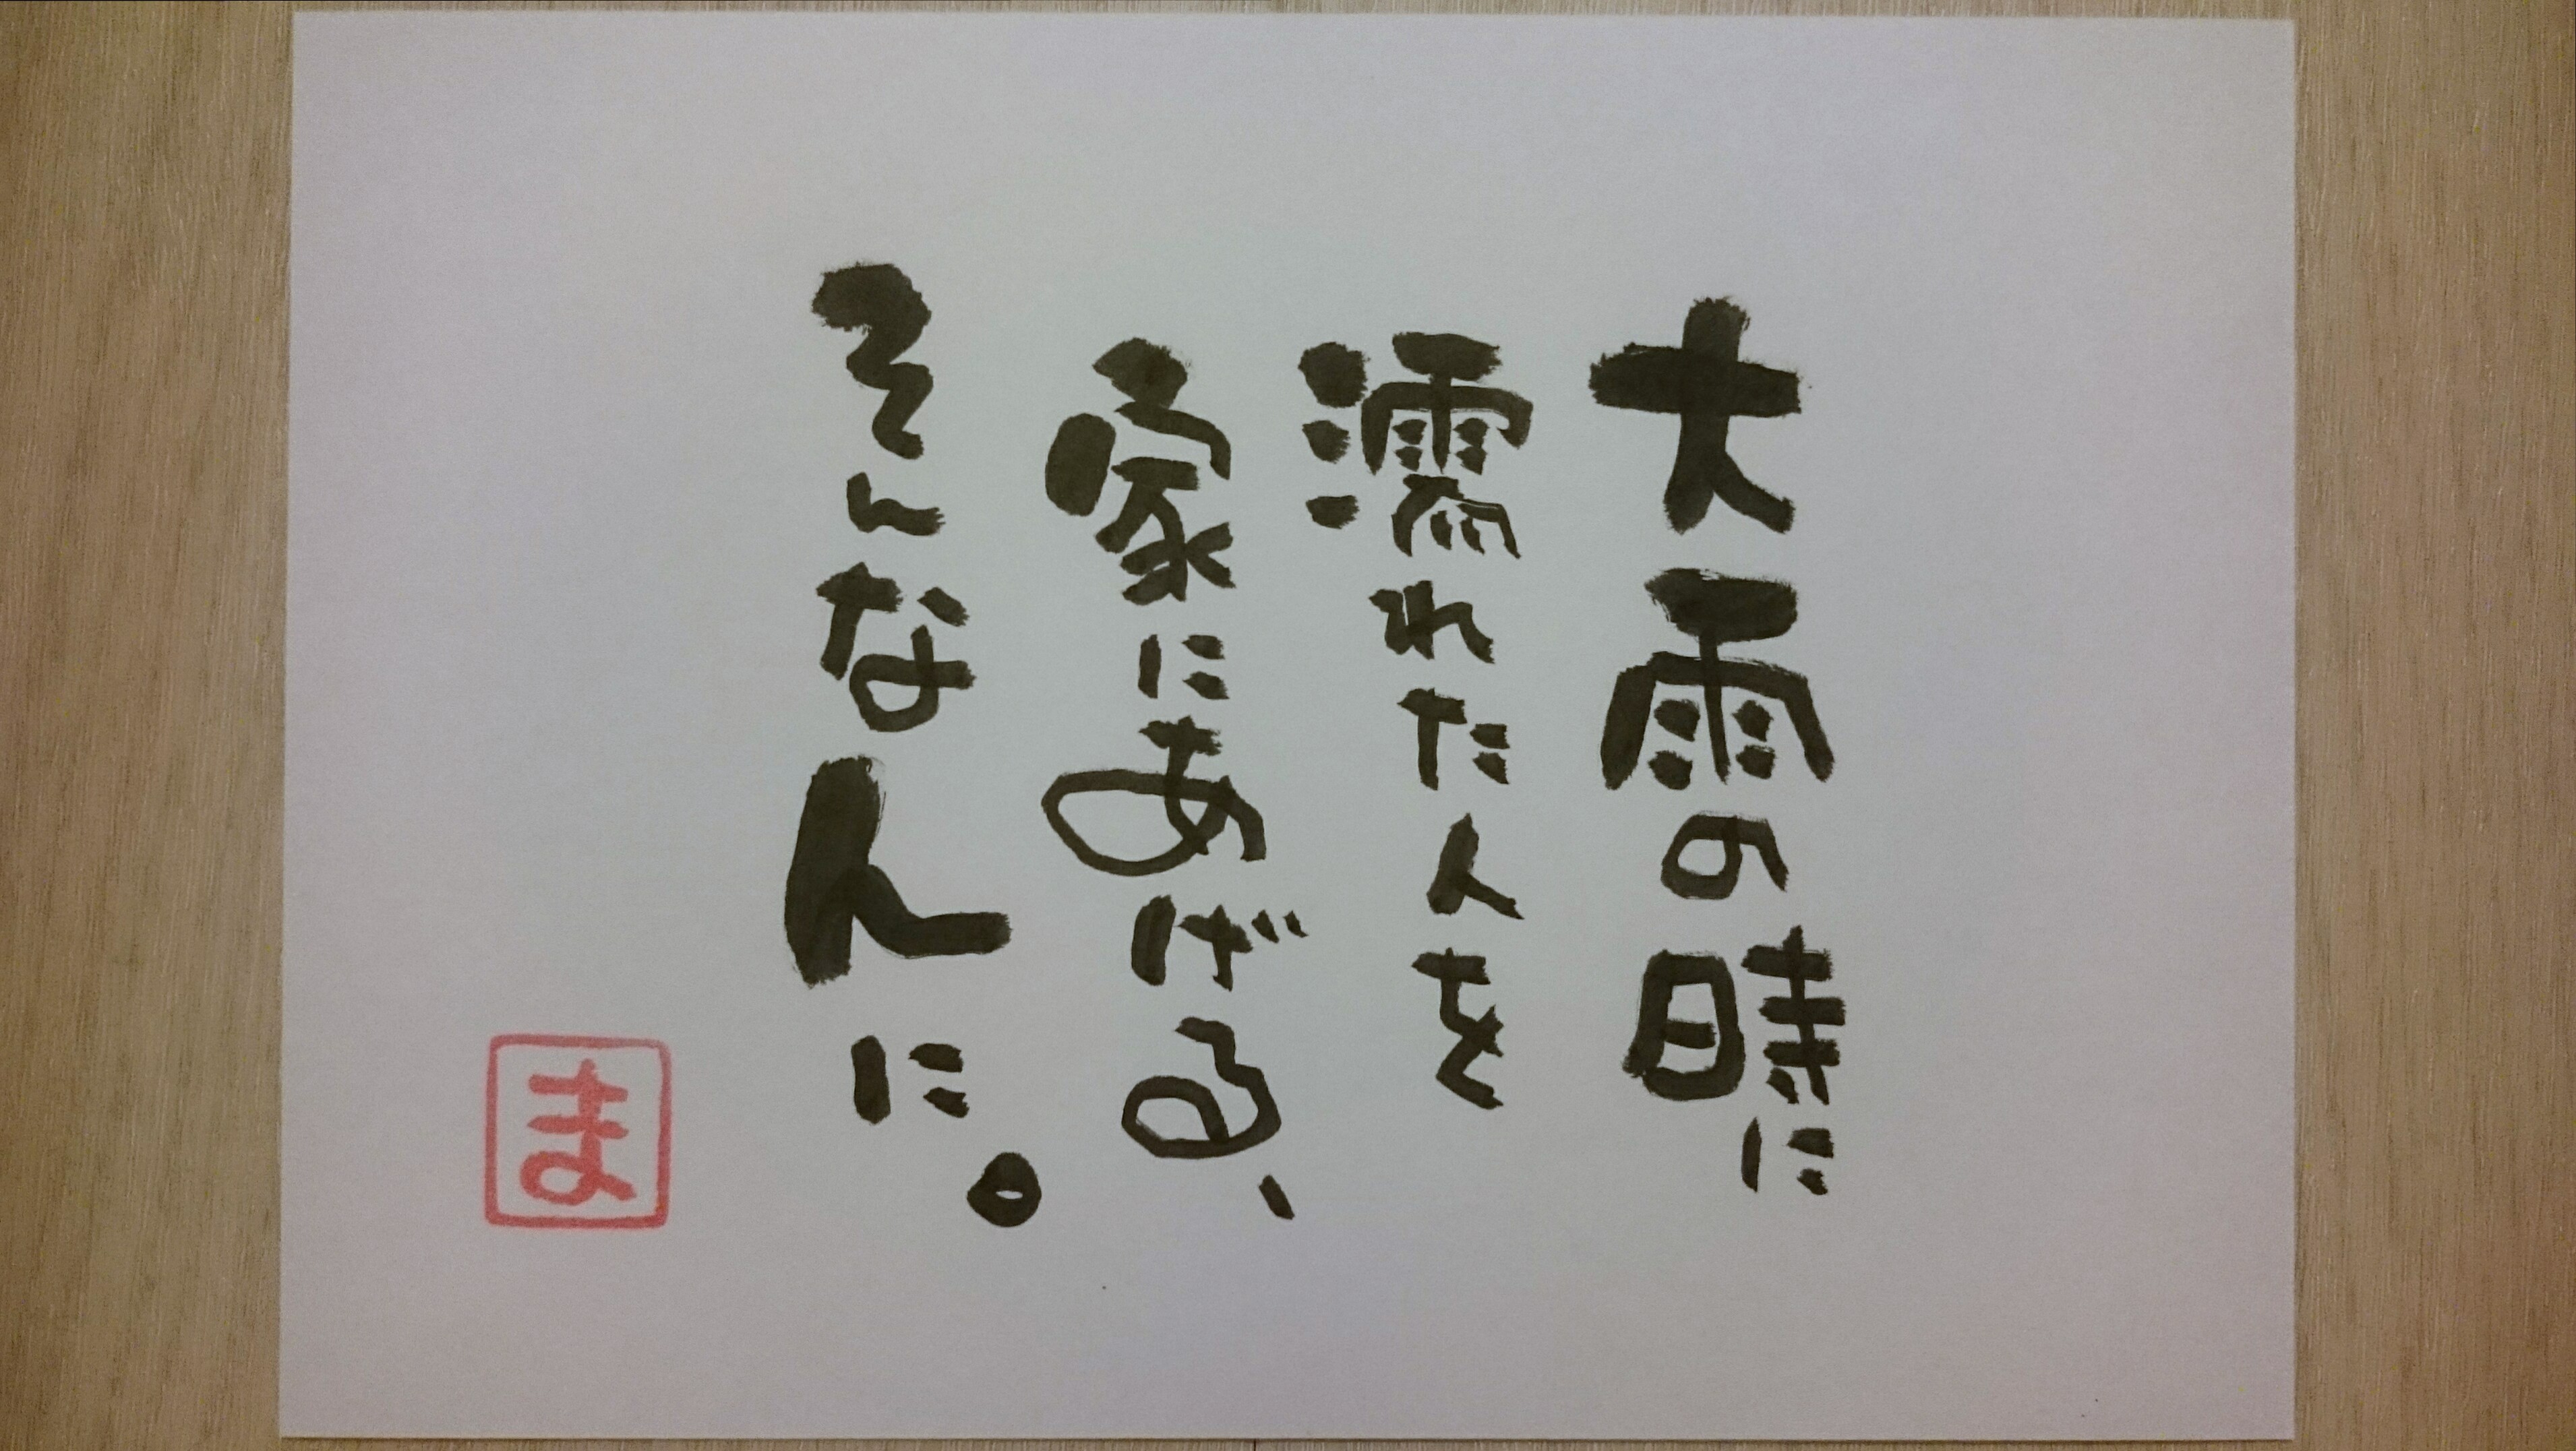 大雨の時に
濡れた人を
家にあげる、
そんなんに。
ま